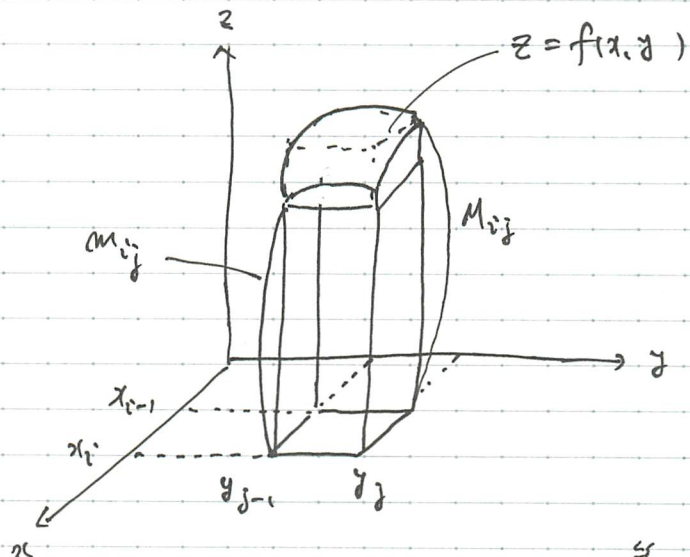 z
z = f(x, y)
m_{ij}
M_{ij}
y
x_{i-1}
x_i
y_{j-1} y_j
x